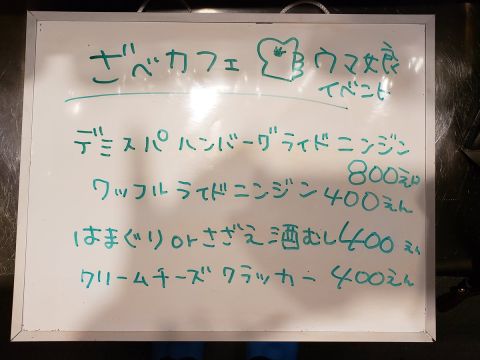 ざべカフェ ウマ娘
イベント
デミスパハンバーグライドニンジン
800えん
ワッフルライドニンジン400えん
はまぐりorさざえ酒むし400えん
クリームチーズクラッカー400えん